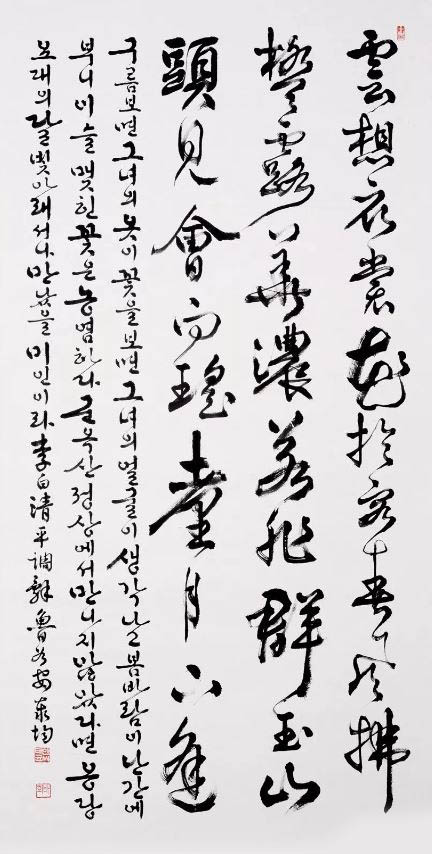 雲想衣裳花容春風拂
檻露華濃若非群玉山
頭見會向瑤臺月下逢
구름보면 그녀의 옷이 꽃을 보면 그녀의 얼굴이 봄바람이 난간에
부니 이슬 맺힌 꽃은 농염하다 군옥산 정상에서 만나지 않았다면
달빛아래서나 만났을 미인이라 李白淸平調辭